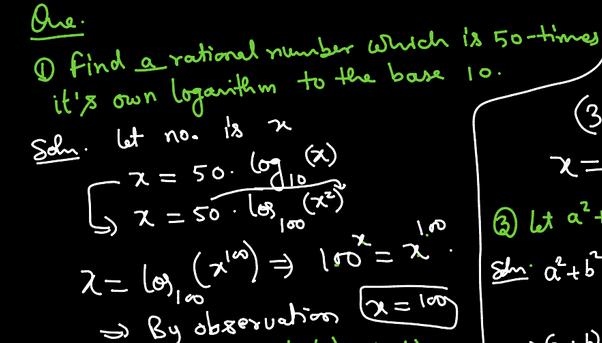 Que.
① find a rational number which is 50-times
it's own logarithm to the base 10.
Soln. let no. is x
x = 50. log₁₀(x)
x = 50. log₁₀₀(x²)
x = log₁₀₀(x¹⁰⁰) ⇒ 100ˣ = x¹⁰⁰.
⇒ By observation x = 100
(3
x=
② let a²+
Soln. a²+b²